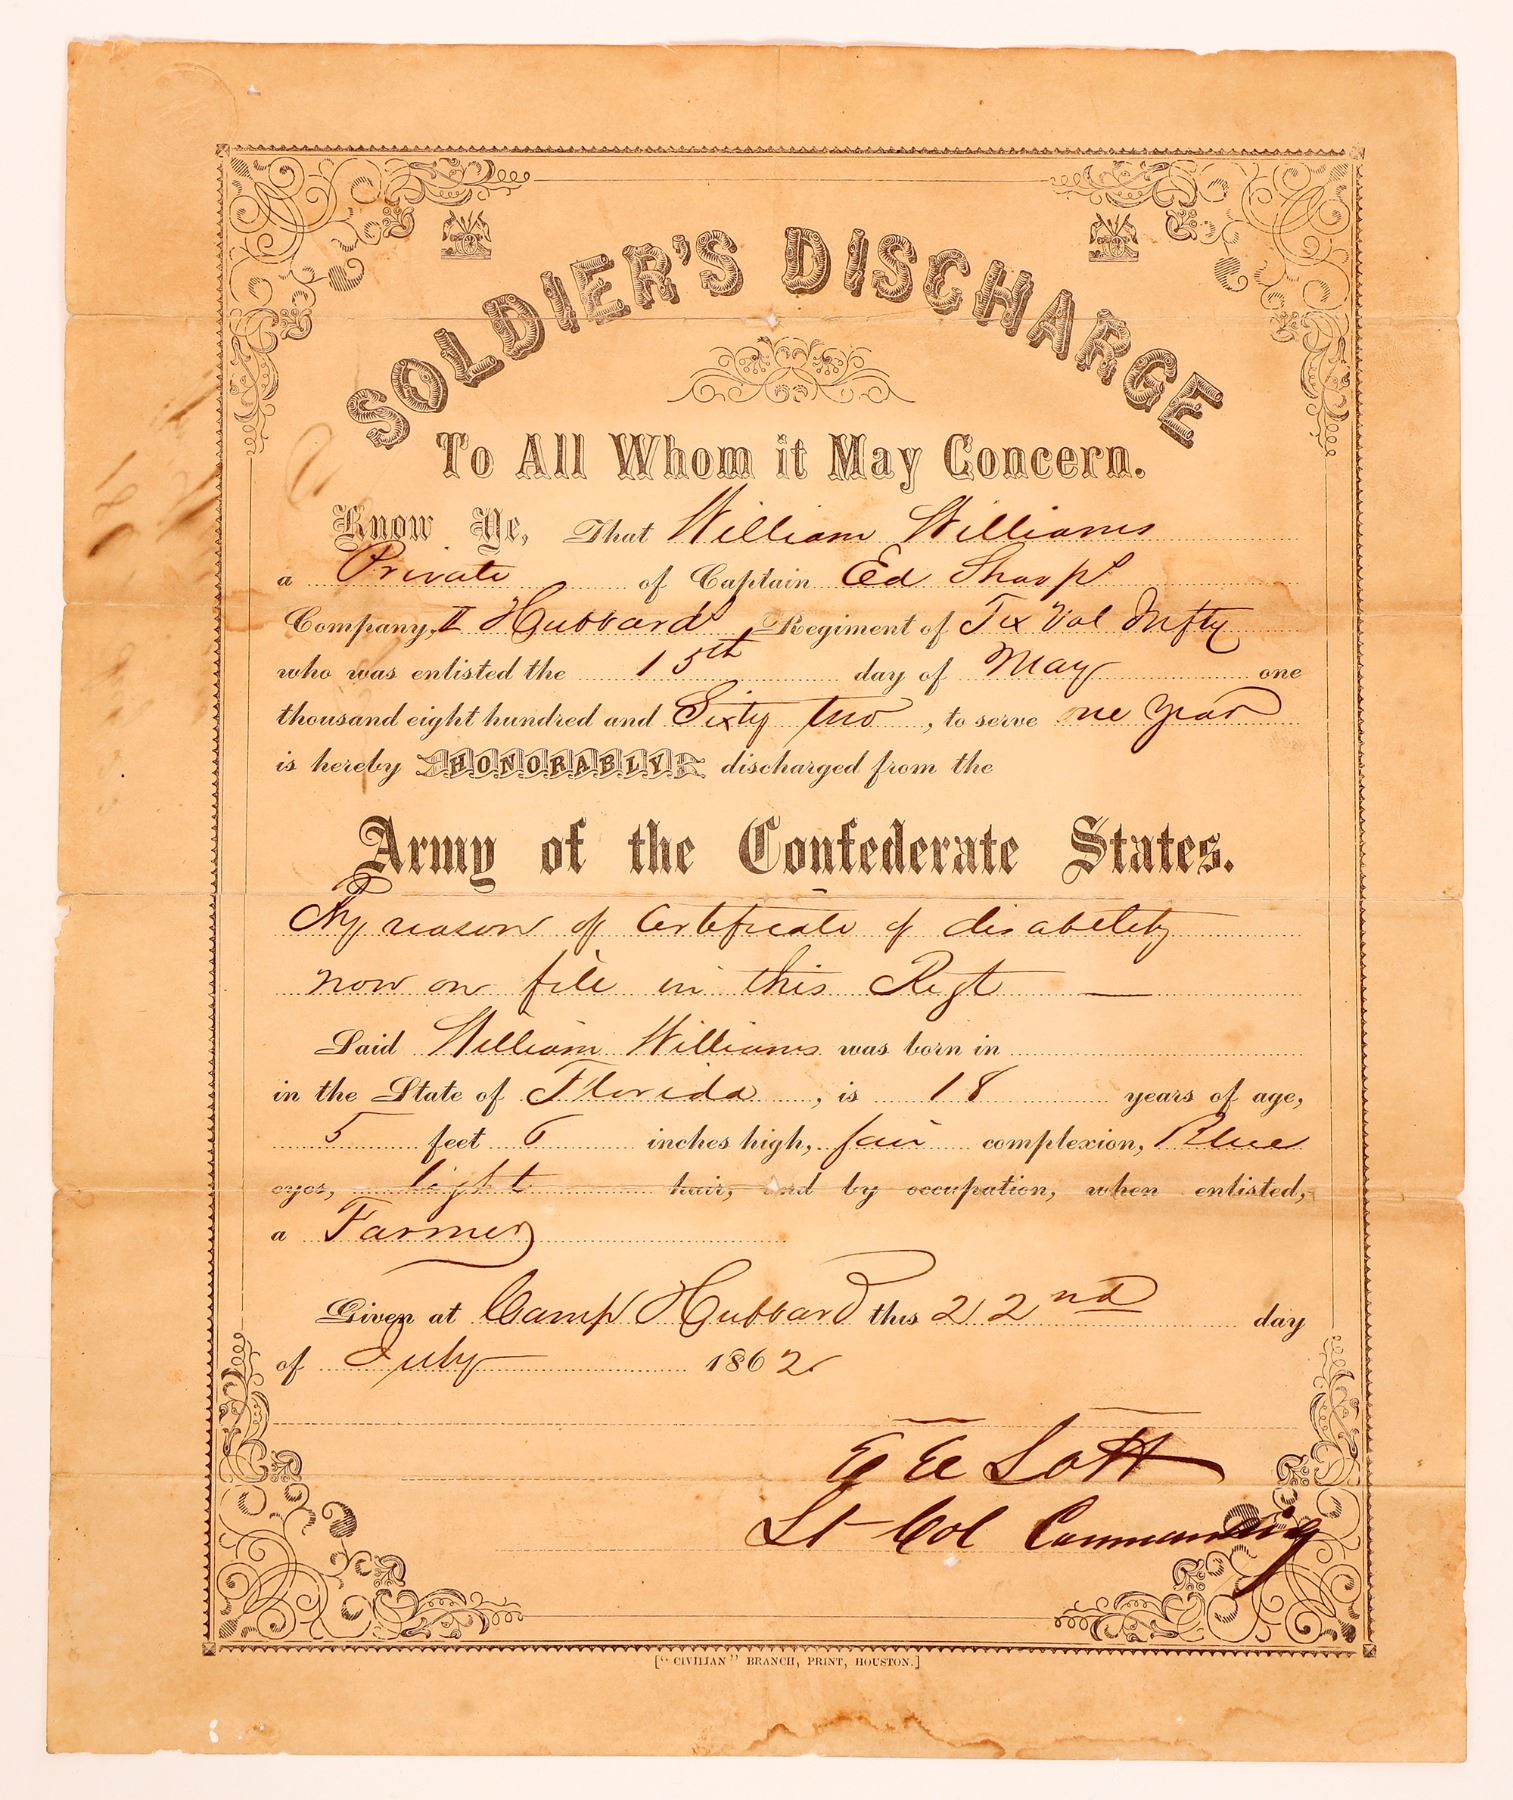 SOLDIER'S DISCHARGE
To All Whom it May Concern.
Know Ye, That William Williams
a Private of Captain Ed Sharps
Company, Hubbards Regiment of Tex Vol Infty
who was enlisted the 15th day of May one
thousand eight hundred and Sixty two, to serve one year
is hereby HONORABLY discharged from the
Army of the Confederate States.
By reason of Certificate of disability
now on file in this Regt
Said William Williams was born in
in the State of Florida, is 18 years of age,
5 feet 6 inches high, fair complexion, Blue
eyes, light hair, and by occupation, when enlisted,
a Farmer
Given at Camp Hubbard this 22nd day
of July 1862
E E Lott
Lt Col Commanding
["CIVILIAN" BRANCH, PRINT, HOUSTON.]